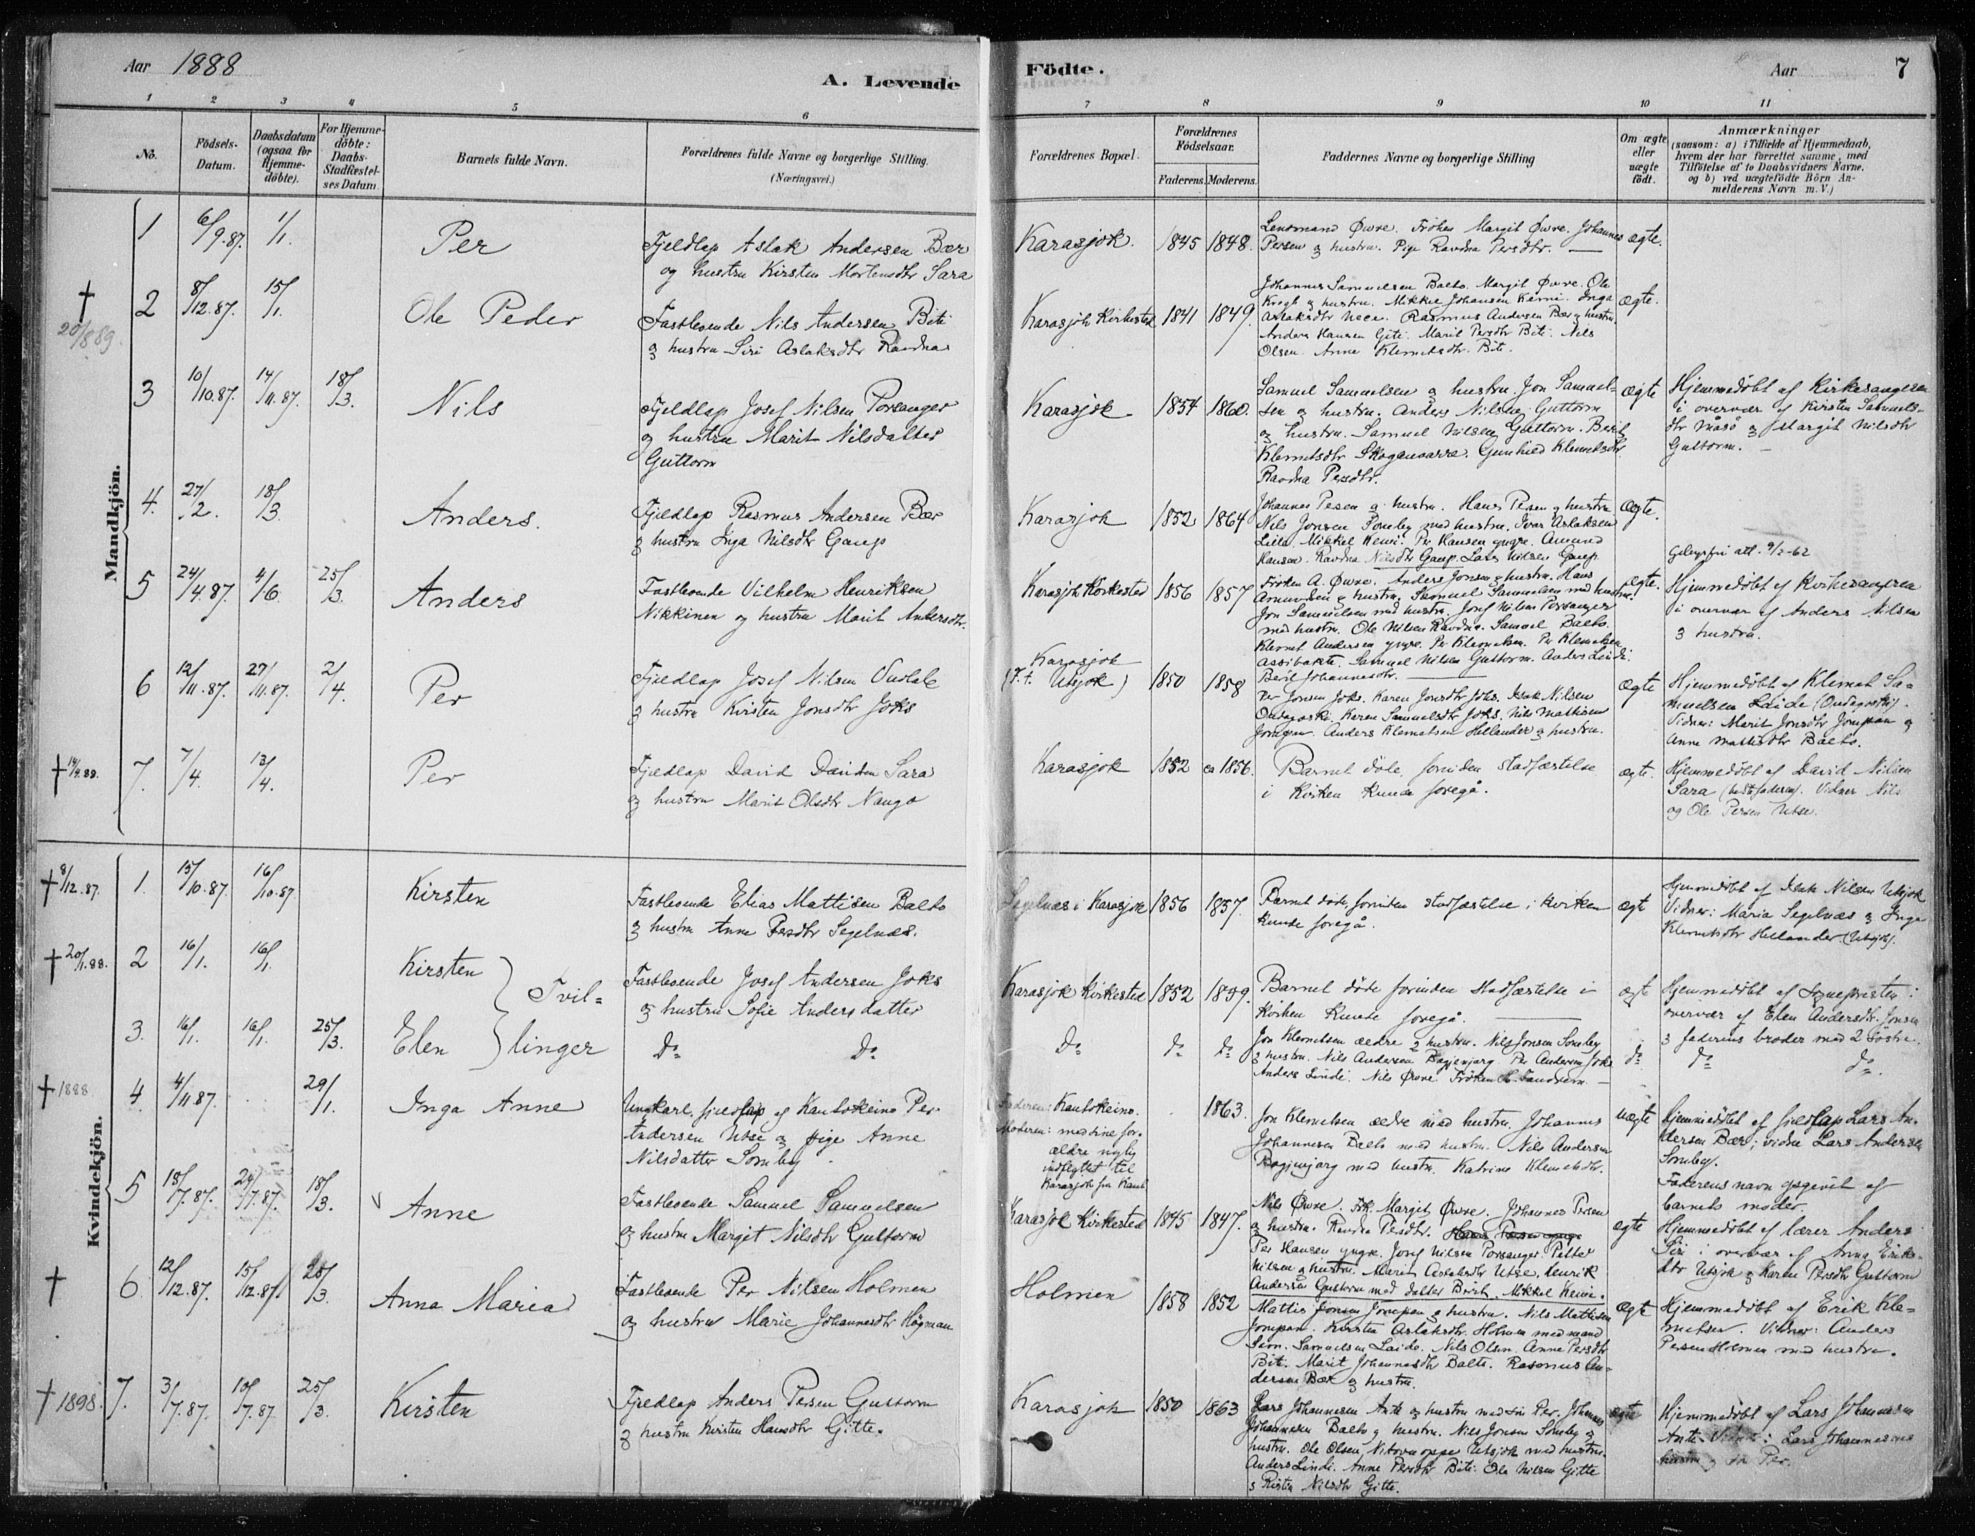 Aar 1888
A. Levende
1 2 3 4 5 6
No.
Födsels-
Datum.
Daabsdatum
(ogsaa for
Hjemme-
döbte).
For Hjemme-
döbte:
Daabs-
Stadfæstel-
ses Datum.
Barnets fulde Navn.
Forældrenes fulde Navne og borgerlige Stilling.
(Næringsvei.)
Mandkjön.
1 6/9.87. 1/1. Per
Fjeldlap Aslak Andersen Bær
og hustru Kirsten Mortensdtr Sara
† 20/8 89. 2 8/12.87. 15/1. Ole Peder
Fastboende Nils Andersen Biti
og hustru Siri Aslaksdtr Ravdna
3 10/10.87. 14/11.87. 18/3. Nils
Fjeldlap Josef Nilsen Porsanger
og hustru Marit Nilsdatter
Guttorm
4. 27/2. 18/3 Anders.
Fjeldlap Rasmus Andersen Bær
og hustru Inga Nilsdtr Gaup
5 24/4.87. 4/6. 25/3. Anders
Fastboende Vilhelm Henriksen
Nikkinen og hustru Marit Andersdtr.
6 12/11.87. 27/11.87. 2/4. Per
Fjeldlap Josef Nilsen
og hustru Kirsten Jonsdtr Joks
† 14/4.88. 7. 7/4. 13/4. Per
Fjeldlap David Davidsen Sara
og hustru Marit Olsdtr Nango
Kvindekjön.
† 8/12.87. 1. 15/10.87. 16/10.87 Kirsten
Fastboende Elias Mattisen Balto
og hustru Anne Persdtr Segelnæs.
† 20/1.88. 2 16/1. 16/1. Kirsten
Tvil=
Fastboende Josef Andersen Joks
og hustru Sofie Andersdatter
3. 16/1. 16/1. 25/3. Elen
linger
do do
† 1888 4. 4/11.87. 29/1. Inga Anne
Ungkarl, fjeldlap af Kautokeino Per
Andersen Utse og pige Anne
Nilsdatter Somby.
5 18/7.87. 29/7.87. 18/3. Anne
Fastboende Samuel Samuelsen
og hustru Margit Nilsdtr Guttorm
† 6. 12/12.87. 15/12.87. 25/3. Anna Maria
Fastboende Per Nilsen Holmen
og hustru Marie Johannesdtr Hågman
† 1898. 7. 3/7.87. 10/7.87 25/3. Kirsten
Fjeldlap Anders Persen Guttorm
og hustru Kirsten Hansdtr Gitte.
Födte.
Aar
7
7 8 9 10 11
Forældrenes Bopæl.
Forældrenes
Födselsaar.
Faderens. Moderens.
Faddernes Navne og borgerlige Stilling
Om ægte
eller
uægte
födt.
Anmærkninger
(saasom: a) i Tilfælde af Hjemmedaab,
hvem der har forrettet samme, med
Tilföielse af to Daabsvidners Navne,
og b) ved uægtefödte Börn An-
melderens Navn m. V.)
Karasjok. 1845 1848.
Lensmand Øwre. Frøken Margit Øwre. Johannes
Persen og hustru. Pige Ravdna Persdtr.
ægte.
Karasjok Kirkested 1841 1849.
Johannes Samuelsen Balto. Margit Øwre. Ole
Krogh og hustru. Mikkel Johansen Kemi. Inga
Aslaksdtr. Rasmus Andersen Bær og hustru.
Anders Hansen Gitte. Marit Persdtr Biti. Nils
Olsen. Anne Klemetsdtr. Biti.
ægte.
Karasjok 1854 1860.
Samuel Samuelsen og hustru. Jon Samuel-
sen og hustru. Anders Nilsen Guttorm
og hustru. Samuel Nilsen Guttorm. Berit
Klemetsdtr Skoganvarre. Gunhild Klemetsdtr
Ravdna Persdtr.
ægte
Hjemmedøbt af Kirkesangeren
i overvær af Kirsten Samuels-
dtr Måsø og Margit Nilsdtr
Guttorm.
Karasjok 1852 1864
Johannes Persen og hustru. Hans Persen og hustru
Nils Jonsen Somby med hustru. Ivar Aslaksen
Mikkel Kemi. Per Hansen yngre. Amund
Hansen. Ravdna Nilsdtr Gaup. Lars Nilsen Gaup.
Ægte.
Karasjok Kirkested 1856 1857
Frøken A. Øwre. Anders Jonsen og hustru. Hans
Amundsen og hustru. Samuel Samuelsen med hustru.
Jon Samuelsen med hustru. Josef Nilsen Porsanger
med hustru. Ole Nilsen Ravdna. Samuel Balto.
Klemet Andersen yngre. Per Klemetsen.
Samuel Nilsen Guttorm. Anders Lindi.
Berit Johannesdtr.
ægte.
Hjemmedøbt af Kirkesangeren
i overvær af Anders Nilsen
og hustru.
Karasjok
(f.t. Utsjok) 1850 1858
Per Jonsen Joks. Karen Jonsdtr Joks. Isak Nilsen
Karen Samuelsdtr Joks. Nils Mathisen
Anders Klemetsen Hellander og hustru.
ægte
Hjemmedøbt af Klemet Sa-
muelsen Laide
Vidner: Marit Jonsdtr og
Anne Mattisdtr Balto.
Karasjok 1852 ca 1856.
Barnet døde, forinden stadfæstelse
i kirken kunde foregå.
ægte.
Hjemmedøbt af David Nilsen
Sara (bedstefaderen). Vidner Nils
og Ole Persen Utse.
Segelnæs i Karasjok 1856 1857.
Barnet døde, forinden stadfæstelse i kirken
kunde foregå.
ægt
Hjemmedøbt af Isak Nilsen Utsjok
Vidner: Maria Segelnæs og Inga
Klemetsdtr Hellander (Utsjok).
Karasjok Kirkested 1852 1859.
Barnet døde forinden stadfæstelse i
kirken kunde foregå.
ægte
Hjemmedøbt af Sognepresten i
overvær af Elen Andersdtr. Jonsen
og faderens broder med 2 søstre.
do do do
Jon Klemetsen ældre og hustru. Nils Jonsen Somby
og hustru. Nils Andersen Per Andersen Joks
Anders Lindi. Nils Øwre Frøken
do do do
Faderen: Kautokeino.
Moderen: med sine for-
ældre nylig
indflyttet til
Karasjok fra Kaut.
1863.
Jon Klemetsen ældre med hustru. Johannes
Johannesen Balto med hustru. Nils Andersen
med hustru. Katrine Klemetsdtr.
uægte
Hjemmedøbt af fjeldlap Lars An-
dersen Bær; vidne Lars Andersen
Somby.
Faderens navn opgivet af
barnets moder.
Karasjok Kirkested 1845 1847.
Nils Øwre. Frk. Margit Øwre. Johannes Persen
og hustru. Ravdna Persdtr.
Per Hansen yngre. Josef Nilsen Porsanger. Petter
Nilsen og hustru. Marit Aslaksdtr Utse. Henrik
Andersen Guttorm med datter Berit. Mikkel Kemi.
ægte
Hjemmedøbt af lærer Anders
Siri i overvær af Anna Eriks-
dtr Utsjok og Karen Persdtr Guttorm
Holmen 1858 1852
Mattis Jonsen og hustru. Nils Mattisen
Kirsten Aslaksdtr. Holmen med mand
Samuelsen Laide. Nils Olsen. Anne Persdtr
Biti. Marit Johannesdtr Balto. Rasmus An-
dersen Bær og hustru.
Ægt
Hjemmedøbt af Erik Kle-
metsen. Vidner: Anders
Persen Holmen med hustru.
Karasjok 1850 1863
Lars Johannesen Anti og hustru med søn Per. Johannes
Johannesen Balto og hustru. Nils Jonsen Somby og
hustru. Ole Olsen, Utsjok med hustru.
Anders Lindi. Anne Persdtr Biti. Ole Nilsen Gitte
og Kirsten Nilsdtr Gitte.
ægte
Hjemmedøbt af Lars Johannesen
Anti. Vidner: Lars Johannesens
hustru og søn Per.